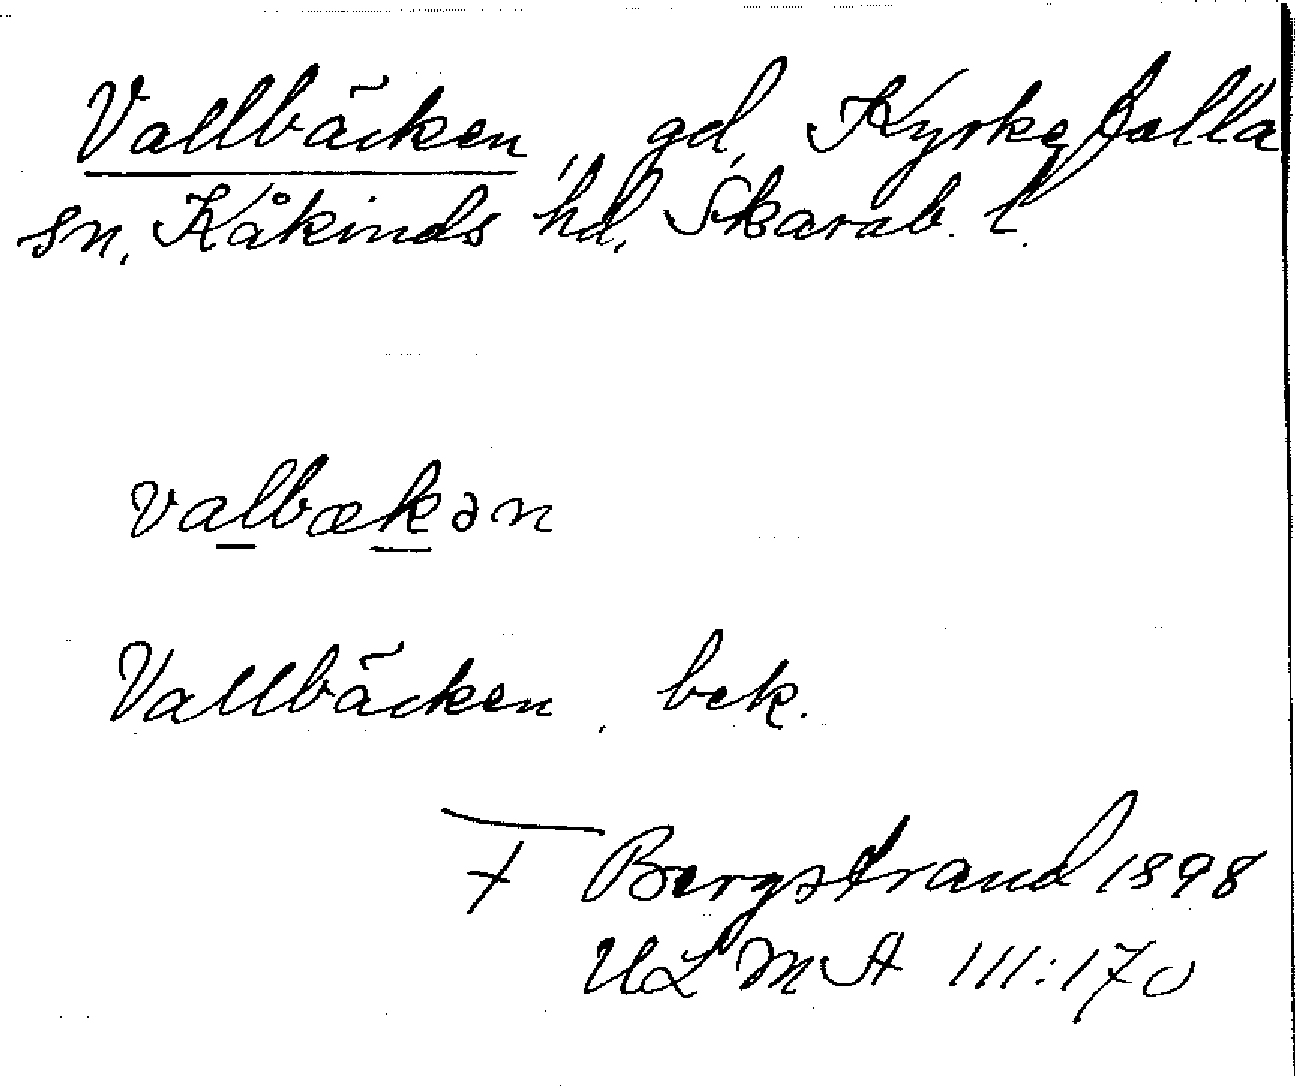 Vallbäcken, gd, Kyrkefalla
sn, Kåkinds hd, Skarab. l.
valbækən
Vallbäcken, bek.
F Bergstrand 1898
ULMA 111:170